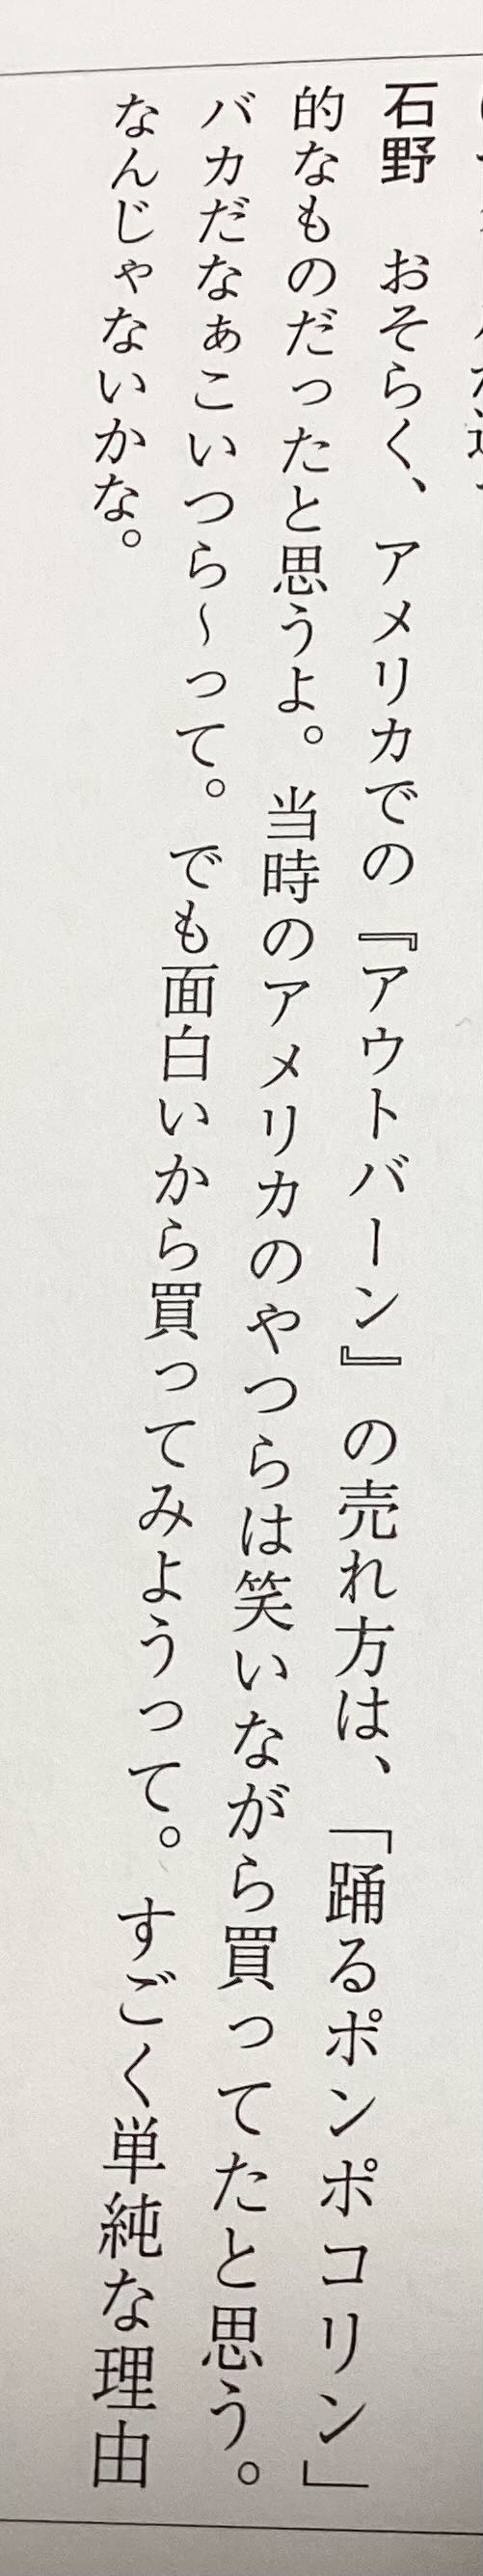 石野　おそらく、アメリカでの『アウトバーン』の売れ方は、「踊るポンポコリン」
的なものだったと思うよ。当時のアメリカのやつらは笑いながら買ってたと思う。
バカだなぁこいつら〜って。でも面白いから買ってみようって。すごく単純な理由
なんじゃないかな。